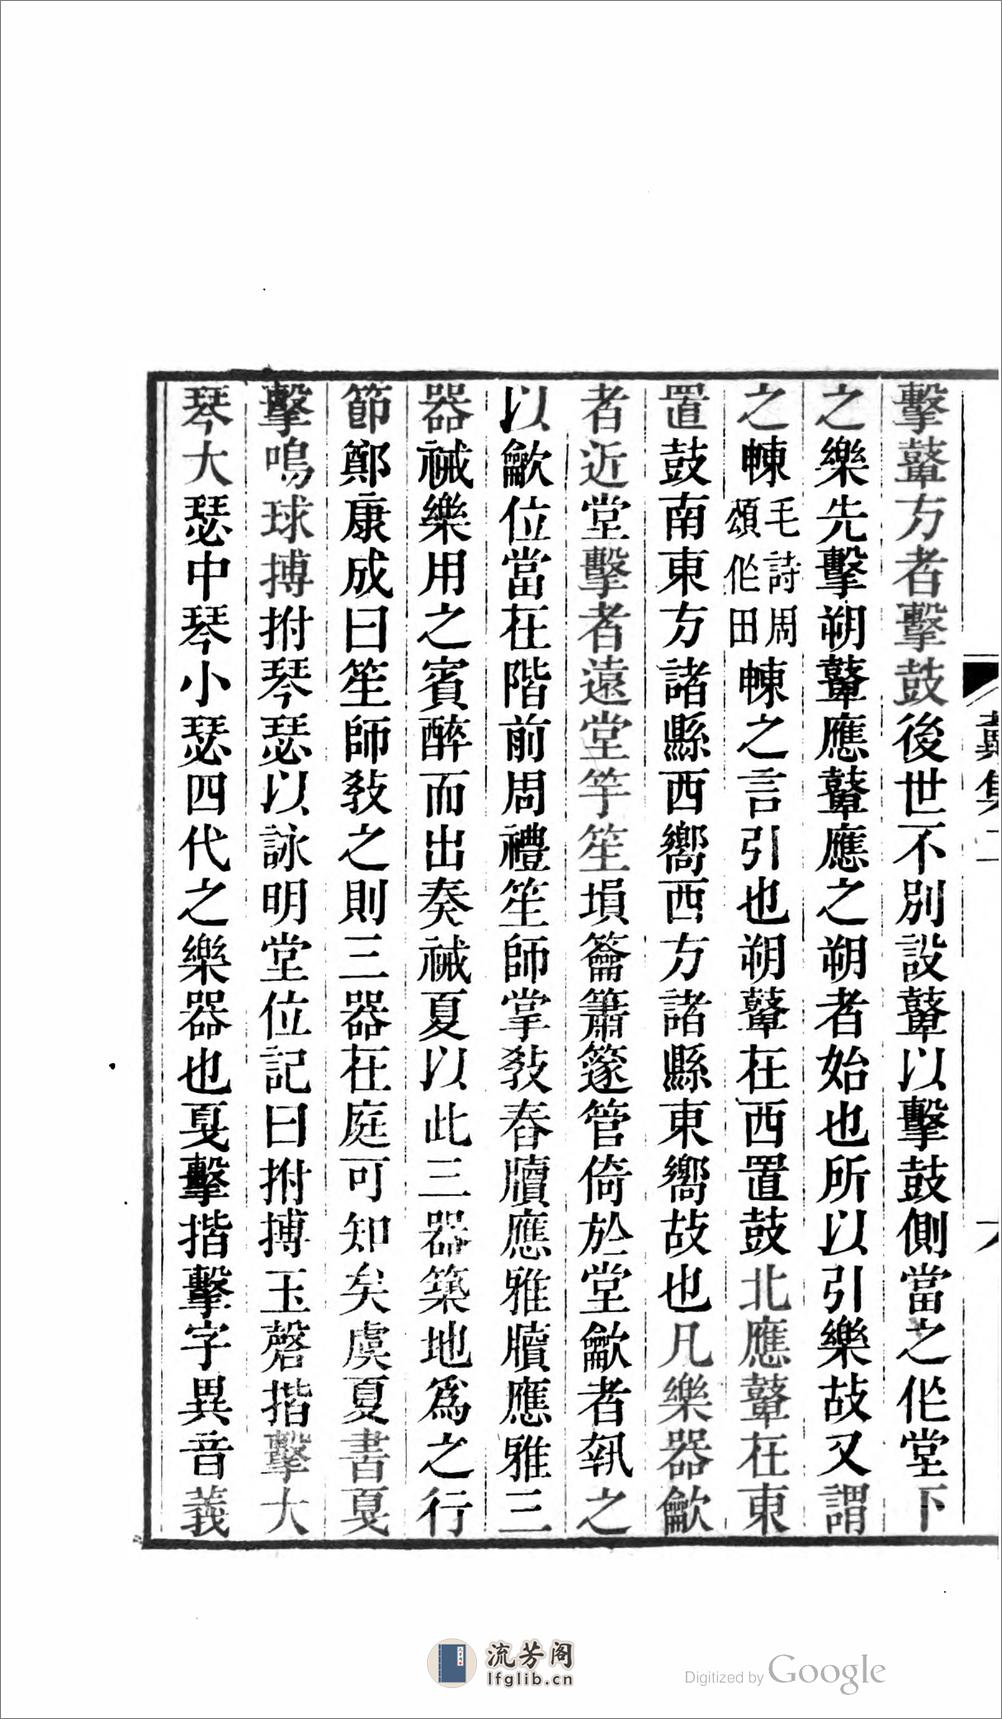 擊鼙方者擊鼓後世不別設鼙以擊鼓側當之作堂下
之樂先擊朔鼙應鼙應之朔者始也所以引樂故又謂
之㯥毛詩周頌作田㯥之言引也朔鼙在西置鼓北應鼙在東
置鼓南東方諸縣西嚮西方諸縣東嚮故也凡樂器歙
者近堂擊者遠堂竽笙塤籥簫篴管倚於堂歙者執之
以歙位當在階前周禮笙師掌敎舂牘應雅牘應雅三
器祴樂用之賓醉而出奏祴夏以此三器築地爲之行
節鄭康成曰笙師敎之則三器在庭可知矣虞夏書戛
擊鳴球搏拊琴瑟以詠明堂位記曰拊搏玉磬揩擊大
琴大瑟中琴小瑟四代之樂器也戛擊揩擊字異音義
流芳阁
lfglib.cn
Digitized by Google